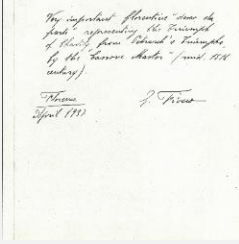 Very important florentine "desco da
parto" representing the Triumph
of Chastity from Petrarch's Triumphs,
by the "Master" (mid. 15th
century).
Florence
April 1997